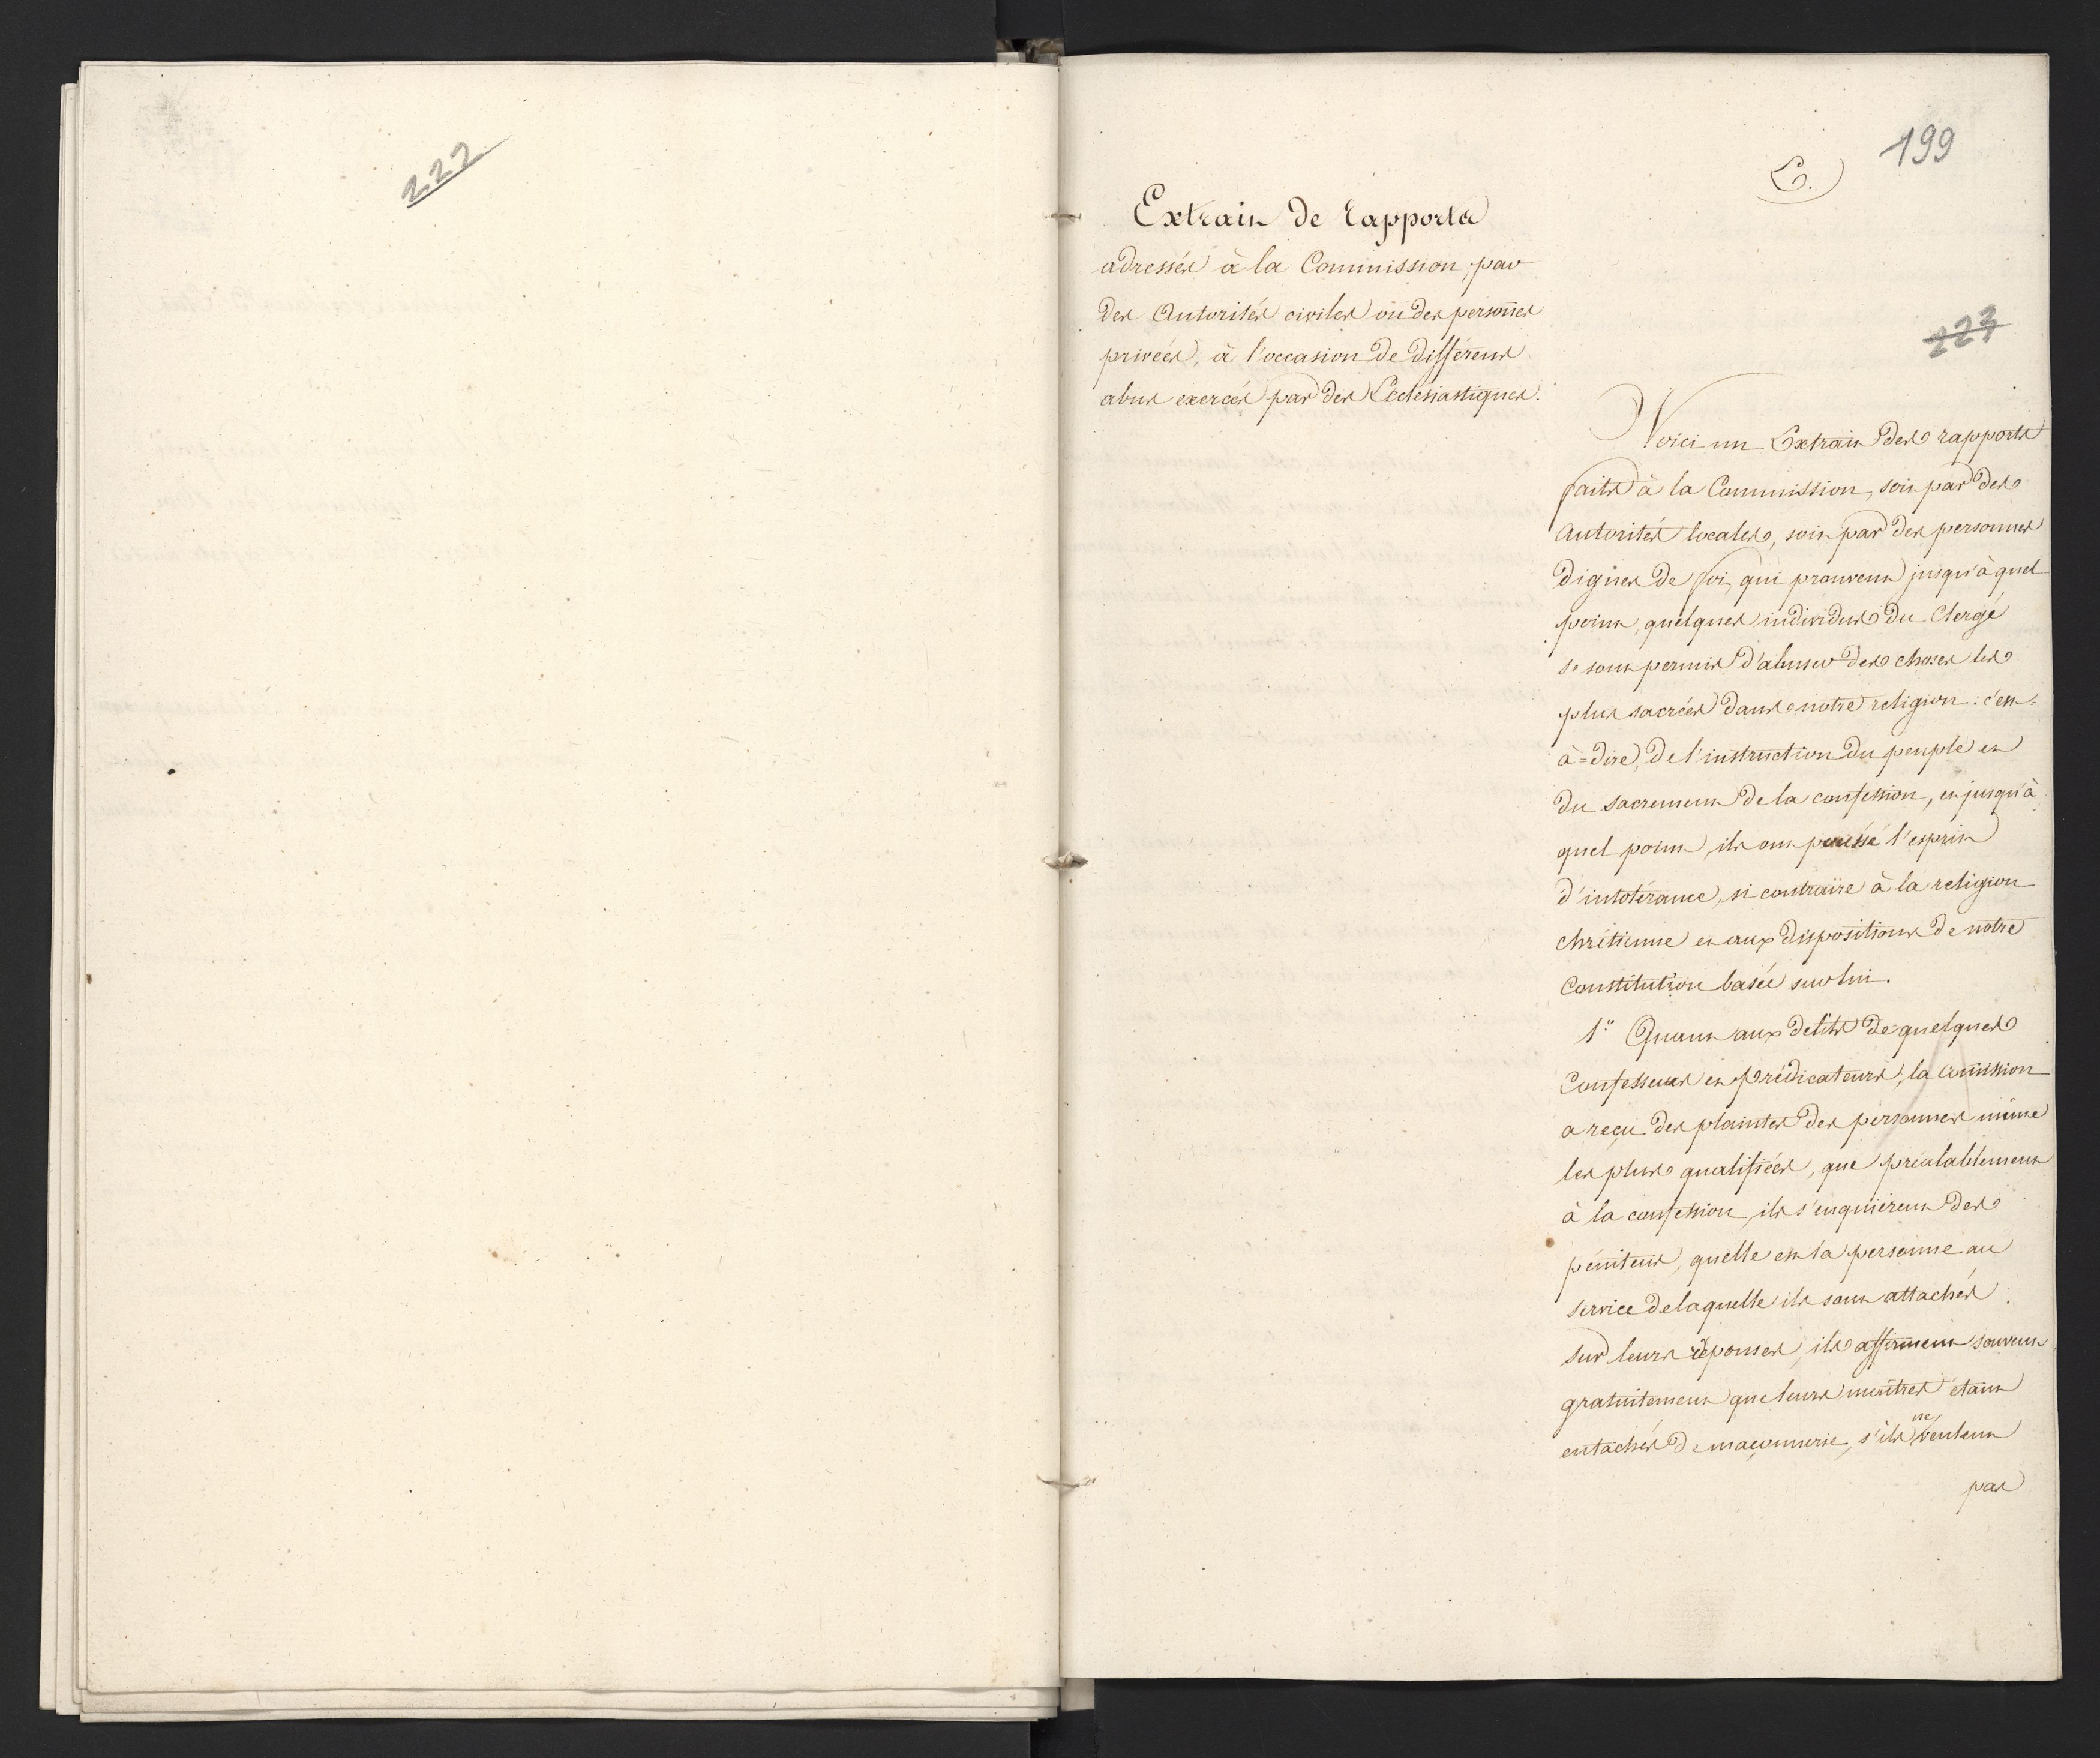 222
199
C.
223
Extrait de rapports
adressés à la Commission, par
des Autorités civiles où des personnes
privées, à l'occasion de différens
abus exercés par des Ecclésiastiques.
Voici un Extrait des rapports
faits à la Commission, soit par des
Autorités locales, soit par des personnes
dignes de foi, qui prouvent jusqu'à quel
point, quelques individus du Clergé
se sont permis d'abuser des choses les
plus sacrées dans notre religion: c'est-
à-dire, de l'instruction du peuple et
du sacrement de la confession, et jusqu'à
quel point, ils ont poussé l'esprit
d'intolérance, si contraire à la religion
chrétienne et aux dispositions de notre
Constitution basée sur lui.
1º Quant aux délits de quelques
Confesseurs et prédicateurs, la Comission
a reçu des plaintes des personnes même
les plus qualifiées, que préalablement
à la confession, ils s'enquièrent des
pénitens, quelle est la personne au
service de laquelle ils sont attachés.
Sur leurs réponses, ils affirment souvent
gratuitement que leurs maîtres étant
entachés de maçonnerie, s'ils ne veulent
pas